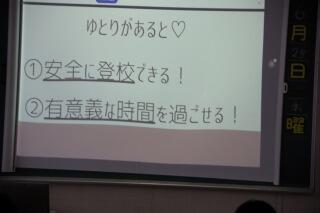 ゆとりがあると♡
①安全に登校できる！
②有意義な時間を過ごせる！
月
日
曜